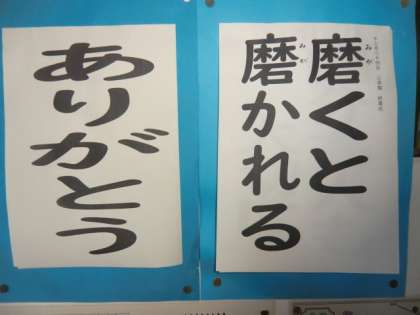 磨くと
みが
磨かれる
みが
ありがとう